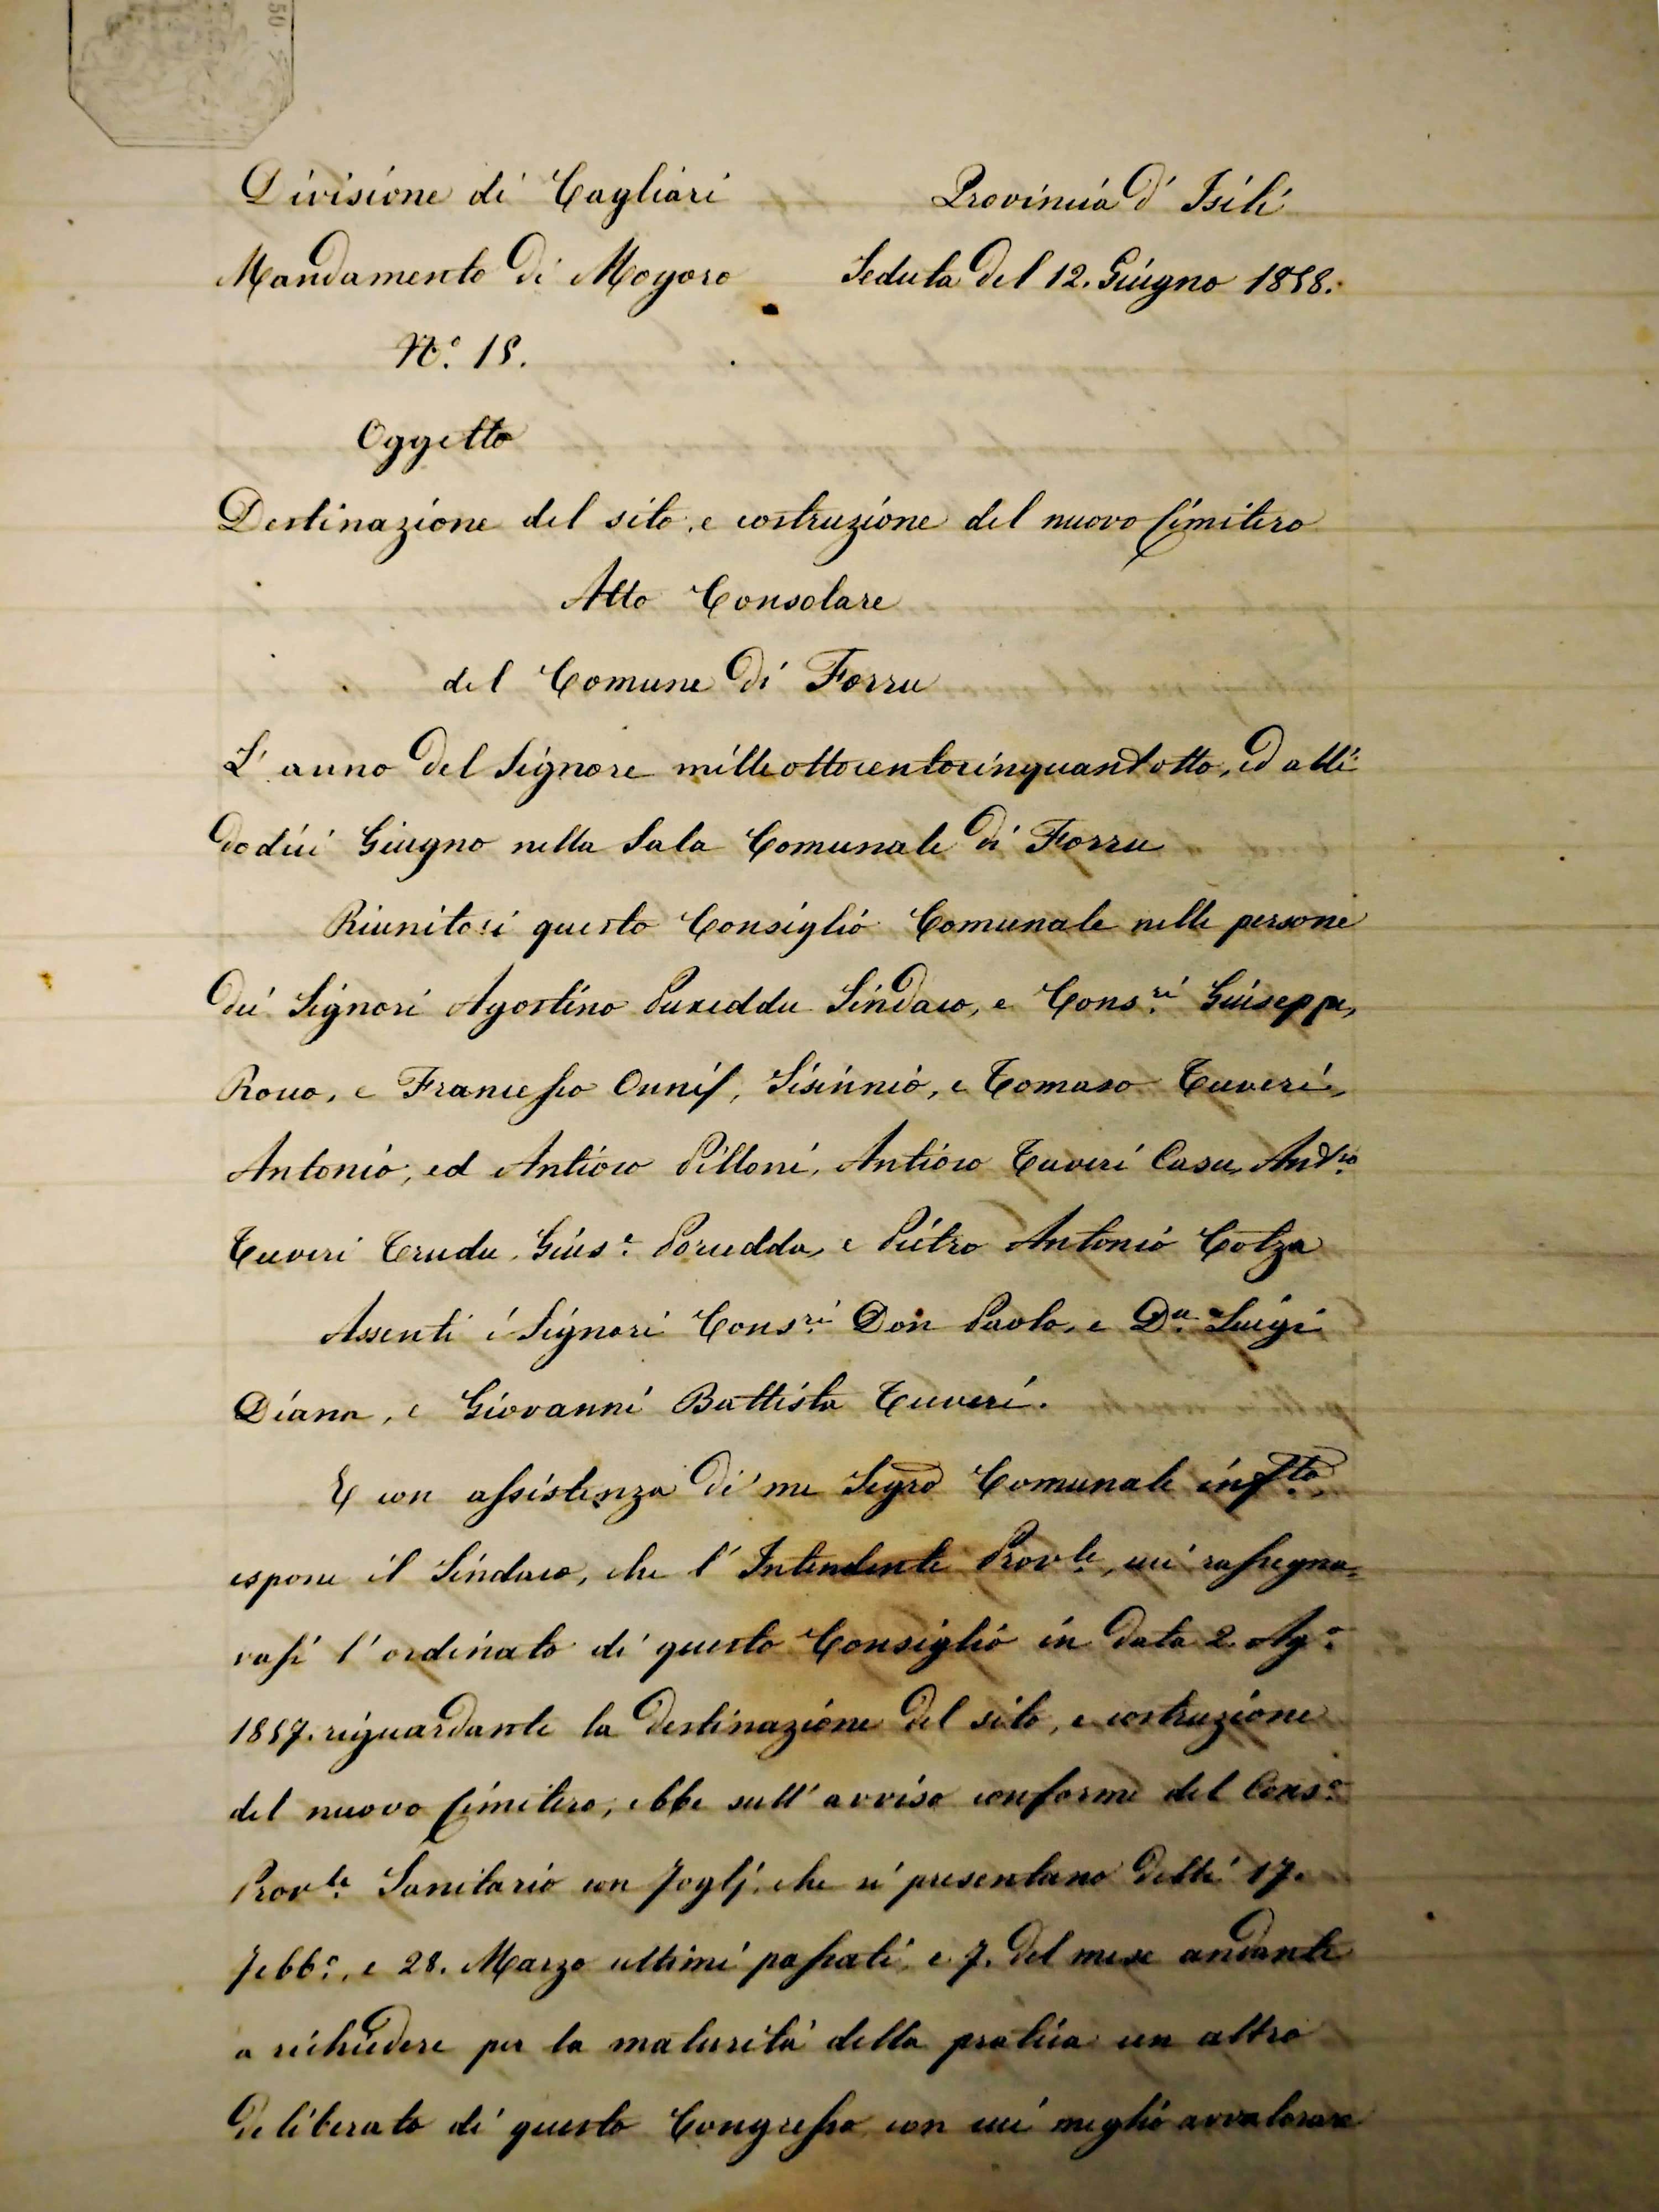 50
Divisione di Cagliari Provincia d' Isili
Mandamento di Mogoro Seduta del 12. Giugno 1858.
N.º 15.
Oggetto
Destinazione del sito, e costruzione del nuovo Cimitero
Atto Consolare
del Comune di Forru
L' anno del Signore milleottocentocinquantotto, ed alli
dodici Giugno nella Sala Comunale di Forru
Riunitosi questo Consiglio Comunale nelle persone
dei Signori Agostino Puxeddu Sindaco, e Cons.ri Giuseppe,
Rocco, e Francesco Onnis, Sisinnio, e Tomaso Tuveri,
Antonio, ed Antioco Pilloni, Antioco Tuveri Casu, Ant.co
Tuveri Trudu, Gius.e Porcedda, e Pietro Antonio Cotza
Assenti i Signori Cons.ri Don Paolo, e D.n Luigi
Diana, e Giovanni Battista Tuveri.
E con assistenza di me Segro Comunale inf.to,
espone il Sindaco, che l' Intendente Prov.le, cui rassegna-
vasi l' ordinato di questo Consiglio in data 2. Ag.o
1857. riguardante la destinazione del sito, e costruzione
del nuovo Cimitero, ebbe sull' avviso conforme del Cons.o
Prov.le Sanitario con foglj, che si presentano delli 17.
Febb.o, e 28. Marzo ultimi passati, e 7. del mese andante
a richiedere per la maturità della pratica un altro
deliberato di questo Congresso con cui meglio avvalorare